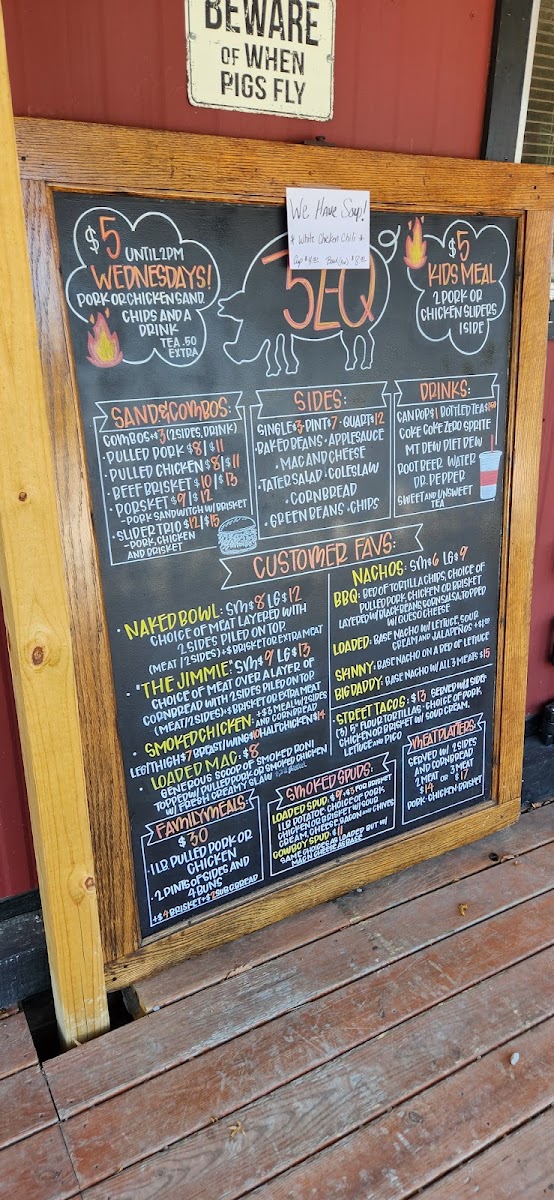 BEWARE
OF WHEN
PIGS FLY
We Have Soup!
* White Chicken Chili *
$5 UNTIL 2PM
WEDNESDAYS!
PORK OR CHICKEN SAND.
CHIPS AND A
DRINK
TEA .50
EXTRA
$5
KIDS MEAL
2 PORK OR
CHICKEN SLIDERS
1 SIDE
SAND & COMBOS:
COMBOS +$3 (2 SIDES, DRINK)
• PULLED PORK $8 | $11
• PULLED CHICKEN $8 | $11
• BEEF BRISKET $10 | $13
• PORSKET $9 | $12
- PORK SANDWITCH W/ BRISKET
• SLIDER TRIO $12 | $15
- PORK, CHICKEN
AND BRISKET
SIDES:
SINGLE $3 • PINT $7 • QUART $12
• BAKED BEANS • APPLESAUCE
• MAC AND CHEESE
• TATER SALAD • COLESLAW
• CORNBREAD
• GREEN BEANS • CHIPS
DRINKS:
CAN POP $1 BOTTLED TEA
COKE COKE ZERO SPRITE
MT DEW DIET DEW
ROOT BEER WATER
DR. PEPPER
SWEET AND UNSWEET
TEA
CUSTOMER FAVS:
• NAKED BOWL: SM $8 LG $12
CHOICE OF MEAT LAYERED WITH
2 SIDES PILED ON TOP
(MEAT / 2 SIDES) +$ BRISKET OR EXTRA MEAT
• "THE JIMMIE": SM $9 LG $13
CHOICE OF MEAT OVER A LAYER OF
CORNBREAD WITH 2 SIDES PILED ON TOP
(MEAT / 2 SIDES) +$ BRISKET OR EXTRA MEAT
• SMOKED CHICKEN: +$3 MEAL W/ 2 SIDES
AND CORNBREAD
LEG/THIGH $7 BREAST/WING $10 HALF CHICKEN $14
• LOADED MAC: $8
GENEROUS SCOOP OF SMOKED RONI
TOPPED W/ PULLED PORK OR SMOKED CHICKEN
W/ FRESH CREAMY SLAW
NACHOS: SM $6 LG $9
BBQ: BED OF TORTILLA CHIPS, CHOICE OF
PULLED PORK, CHICKEN OR BRISKET
LAYERED W/ BLACK BEAN & CORN SALSA, TOPPED
W/ QUESO CHEESE
LOADED: BASE NACHO W/ LETTUCE, SOUR
CREAM AND JALAPENOS +$1
SKINNY: BASE NACHO ON A BED OF LETTUCE
BIG DADDY: BASE NACHO W/ ALL 3 MEATS $15
STREET TACOS: $13 SERVED W/ 2 SIDES
(3) 5" FLOUR TORTILLAS • CHOICE OF PORK
CHICKEN OR BRISKET W/ SOUR CREAM,
LETTUCE AND PICO
FAMILY MEALS:
$30
• 1 LB. PULLED PORK OR
CHICKEN
• 2 PINTS OF SIDES AND
4 BUNS
+$4 BRISKET +$2 SUB C.BREAD
SMOKED SPUDS:
LOADED SPUD: $9 +$3 FOR BRISKET
1 LB POTATO, CHOICE OF PORK
CHICKEN OR BRISKET W/ SOUR
CREAM, CHEESE, BACON AND CHIVES
COWBOY SPUD: $11
SAME CHOICES AS LOADED BUT W/
MAC N CHEESE AS BASE
MEAT PLATTERS:
SERVED W/ 2 SIDES
AND CORNBREAD
2 MEAT OR 3 MEAT
$14 $17
PORK • CHICKEN • BRISKET